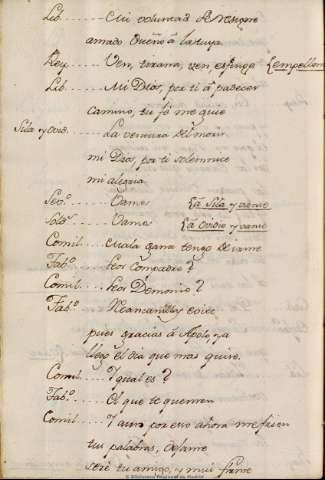 Lib......Mi voluntad
amado Dueño á la tuya
Rey......Ven, tirana, ven esfinge {empellon
Lib......Mi Dios, por ti á padecer
camino, tu fe me guie
Sila y Ovid......La ventura del morir
mi Dios, por ti solemnice
mi alegria
Sevº......Vamos {á Sila y vanse
Soldº......Vamos {á Ovidio y vanse
Comil......mala gana tengo de irme
Fabº......Seor Compadre?
Comil......Seor Demonio?
Fabº
pues gracias á Apolo, ya
llegó el dia que mas quise.
Comil......Y qual es?
Fabº......El que te quemen
Comil......Y aun por eso ahora me frien
tus palabras, dejame
seré tu amigo, y mui firme
Biblioteca Regional de Madrid